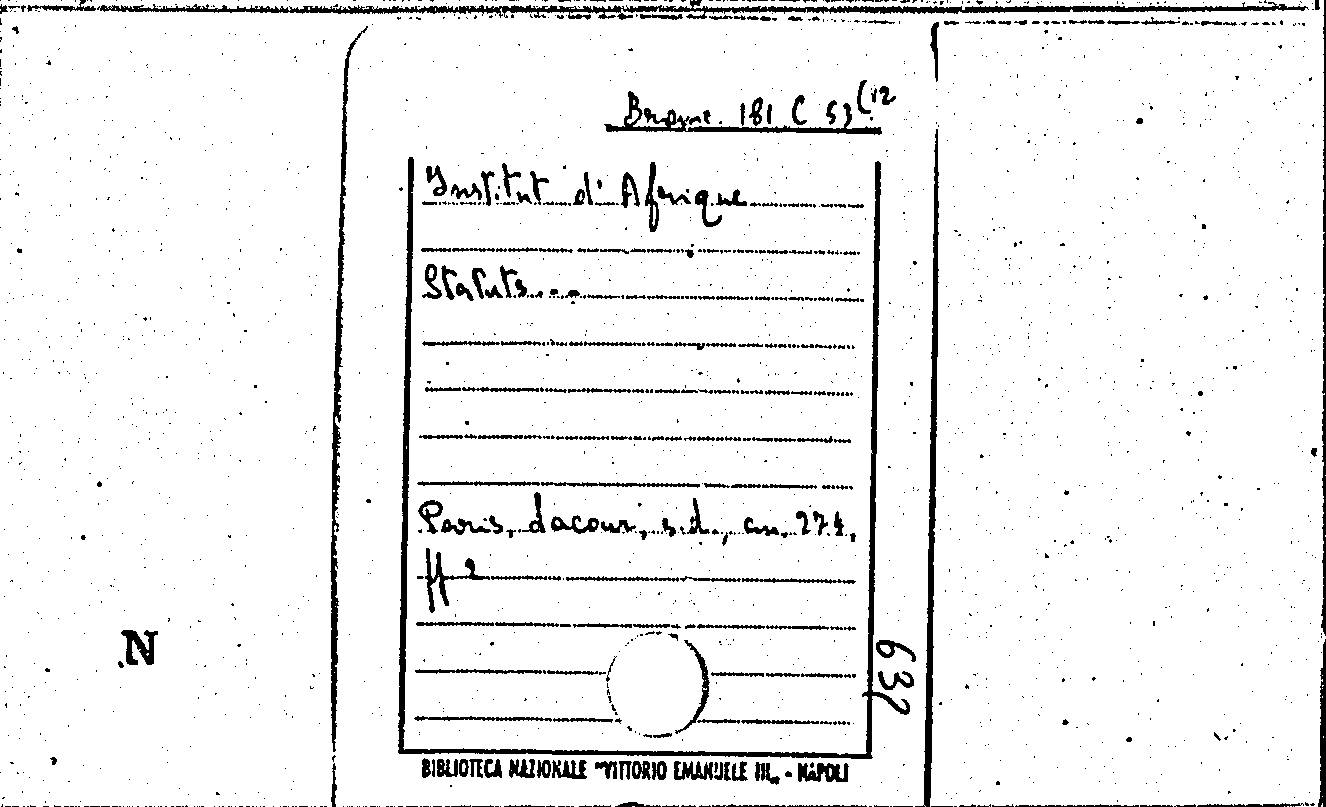 Brorme. 181 C 53(12
Institut d'Afrique
Statuts...
Paris, Lacour, s.d., cm. 27.4,
ff 2
632
N
BIBLIOTECA NAZIONALE "VITTORIO EMANUELE III„ - NAPOLI